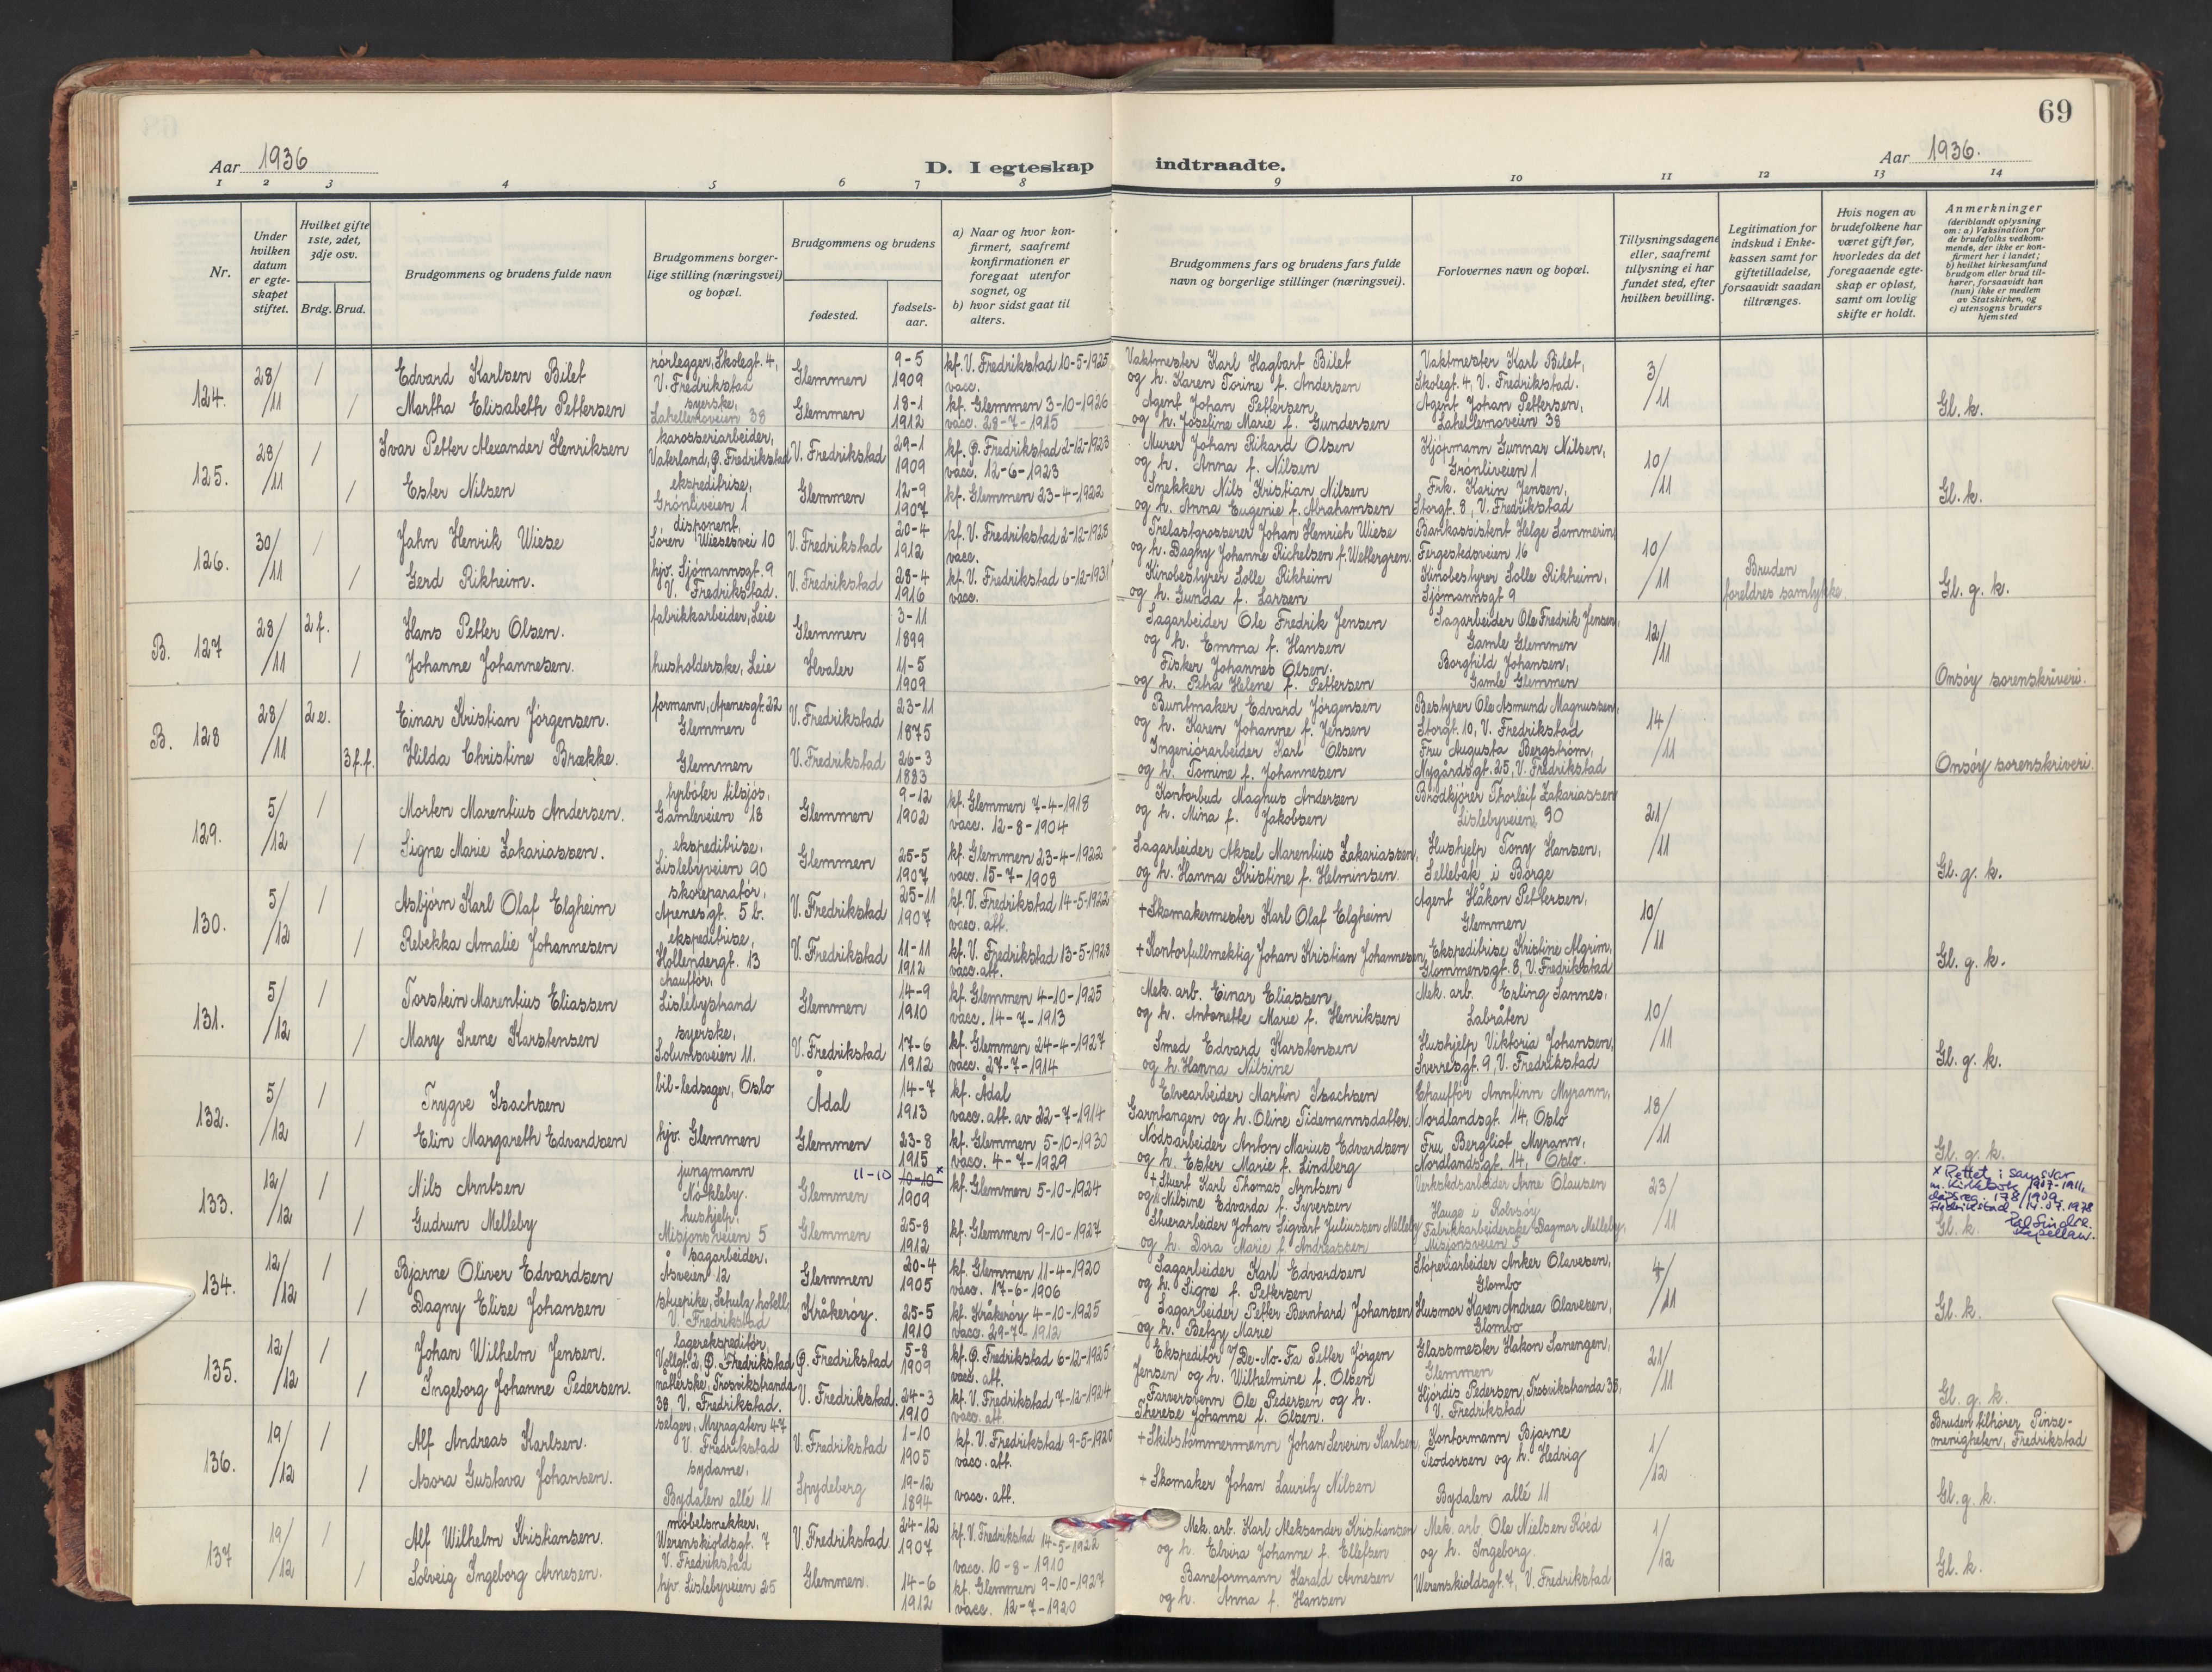 69
Aar 1936
D. I egteskap indtraadte.
Aar 1936.
1 2 3 4 5 6 7 8 9 10 11 12 13 14
Nr.
Under hvilken datum er egte-skapet stiftet.
Hvilket gifte 1ste, 2det, 3dje osv.
Brdg. Brud.
Brudgommens og brudens fulde navn
Brudgommens borger-lige stilling (næringsvei) og bopæl.
Brudgommens og brudens
fødested.
fødsels-aar.
a) Naar og hvor kon-firmert, saafremt konfirmationen er foregaat utenfor sognet, og
b) hvor sidst gaat til alters.
Brudgommens fars og brudens fars fulde navn og borgerlige stillinger (næringsvei).
Forlovernes navn og bopæl.
Tillysningsdagene eller, saafremt tillysning ei har fundet sted, efter hvilken bevilling.
Legitimation for indskud i Enke-kassen samt for giftetilladelse, forsaavidt saadan tiltrænges.
Hvis nogen av brudefolkene har været gift før, hvorledes da det foregaaende egte-skap er opløst, samt om lovlig skifte er holdt.
Anmerkninger
(deriblandt oplysning om: a) Vaksination for de brudefolks vedkom-mende, der ikke er kon-firmert her i landet; b) hvilket kirkesamfund brudgom eller brud til-hører, forsaavidt han (hun) ikke er medlem av Statskirken, og c) utensogns bruders hjemsted
124. 28/11 1 Edvard Karlsen Bilet rörlegger, Skolegt. 4, V. Fredrikstad Glemmen 9-5 1909 kf. V. Fredrikstad 10-5-1925 vacc. Vaktmester Karl Hagbart Bilet og h. Karen Torine f. Andersen Vaktmester Karl Bilet, Skolegt. 4, V. Fredrikstad. 3/11
1 Martha Elisabeth Pettersen syerske, Lahellemoveien 38 Glemmen 18-1 1912 kf. Glemmen 3-10-1926 vacc. 28-7-1915 Agent Johan Pettersen og h. Josefine Marie f. Gundersen Agent Johan Pettersen, Lahellemoveien 38 Gl. k.
125. 28/11 1 Ivar Petter Alexander Henriksen karosseriarbeider, Vaterland, Ø. Fredrikstad V. Fredrikstad 29-1 1909 kf. Ø. Fredrikstad 2-12-1923 vacc. 12-6-1923 Murer Johan Rikard Olsen og h. Anna f. Nilsen Kjöpmann Gunnar Nilsen, Grönliveien 1 10/11
1 Ester Nilsen ekspeditrise, Grönliveien 1 Glemmen 12-9 1907 kf. Glemmen 23-4-1922 Snekker Nils Kristian Nilsen og h. Anna Eugenie f. Abrahamsen Frk. Karin Jensen, Storgt. 8, V. Fredrikstad Gl. k.
126. 30/11 1 Jahn Henrik Wiese disponent, Sören Wiesesvei 10 V. Fredrikstad 20-4 1912 kf. V. Fredrikstad 2-12-1928 vacc. Trelastgrosserer Johan Henrich Wiese og h. Dagny Johanne Richelsen f. Wettergren. Bankassistent Helge Lammerin Fergestedsveien 16 10/11
1 Gerd Rikheim. hjv. Sjömannsgt. 9 V. Fredrikstad. V. Fredrikstad 28-4 1916 kf. V. Fredrikstad 6-12-1931 vacc. Kinobestyrer Solle Rikheim og h. Gunda f. Larsen Kinobestyrer Solle Rikheim, Sjömannsgt 9 Bruden foreldres samtykke Gl. g. k.
B. 127 28/11 2 f. Hans Petter Olsen. fabrikkarbeider, Leie Glemmen 3-11 1899 Sagarbeider Ole Fredrik Jensen og h. Emma f. Hansen Sagarbeider Ole Fredrik Jensen Gamle Glemmen 12/11
1 Johanne Johannesen. husholderske, Leie Hvaler 11-5 1909 Fisker Johannes Olsen. og h. Petra Helene f. Pettersen Borghild Johansen, Gamle Glemmen Onsöy sorenskriveri.
B. 128 28/11 2 e. Einar Kristian Jörgensen. formann, Apenesgt. 22 Glemmen V. Fredrikstad 23-11 1875 Buntmaker Edvard Jörgensen og h. Karen Johanne f. Jensen Bestyrer Ole Asmund Magnussen, Storgt. 10, V. Fredrikstad 14/11
3 f.f. Hilda Christine Brække. Glemmen V. Fredrikstad 26-3 1883 Ingeniörarbeider Karl Olsen og h. Tomine f. Johannesen Fru Augusta Bergström, Nygårdsgt. 25, V. Fredrikstad Onsöy sorenskriveri.
129. 5/12 1 Morten Marentius Andersen. fyrböter tilsjös, Gamleveien 18 Glemmen 9-12 1902 kf. Glemmen 7-4-1918 vacc. 12-8-1904 Kontorbud Magnus Andersen og h. Mina f. Jakobsen Brödkjörer Thorleif Zakariassen Lislebyveien 90 21/11
1 Signe Marie Zakariassen. ekspeditrise, Lislebyveien 90 Glemmen 25-5 1907 kf. Glemmen 23-4-1922 vacc. 15-7-1908 Sagarbeider Aksel Marentius Zakariassen, og h. Hanna Kristine f. Helminsen. Hushjelp Tony Hansen, Sellebak i Borge Gl. g. k.
130. 5/12 1 Asbjörn Karl Olaf Elgheim skoreparatör, Apenesgt. 5 b. V. Fredrikstad 25-11 1907 kf. V. Fredrikstad 14-5-1922 vacc. att. + Skomakermester Karl Olaf Elgheim Agent Håkon Pettersen, Glemmen 10/11
1 Rebekka Amalie Johannesen ekspeditrise, Hollendergt. 13 V. Fredrikstad 11-11 1912 kf. V. Fredrikstad 13-5-1928 vacc. att. + Kontorfullmektig Johan Kristian Johannesen, Ekspeditrise Kristine Algrim, Glommensgt. 8, V. Fredrikstad Gl. g. k.
131. 5/12 1 Torstein Marentius Eliassen chaufför, Lislebystrand Glemmen 14-9 1910 kf. Glemmen 4-10-1925 vacc. 14-7-1913 Mek. arb. Einar Eliassen og h. Antonette Marie f. Henriksen Mek. arb. Erling Sannes, Labråten 10/11
1 Mary Irene Karstensen syerske, Solumsveien 11. V. Fredrikstad 17-6 1912 kf. Glemmen 24-4-1927 vacc. 27-7-1914 Smed Edvard Karstensen og h. Hanna Nilsine Hushjelp Viktoria Johansen, Sverresgt. 9, V. Fredrikstad Gl. g. k.
132. 5/12 1 Trygve Isachsen bil-ledsager, Oslo Ådal 14-7 1913 kf. Ådal vacc. att. av 22-7-1914 Elvearbeider Martin Isachsen Garntangen og h. Oline Tidemannsdatter. Chaufför Annfinn Myrann, Nordlandsgt. 14, Oslo 18/11
1 Elin Margareth Edvardsen hjv. Glemmen Glemmen 23-8 1915 kf. Glemmen 5-10-1930 vacc. 4-7-1929 Nödsarbeider Anton Marius Edvardsen og h. Ester Marie f. Lindberg Fru Bergliot Myrann, Nordlandsgt. 14, Oslo. Gl. g. k.
133. 12/12 1 Nils Arntsen jungmann Nökleby. Glemmen 11-10 10-10 x 1909 kf. Glemmen 5-10-1924 + Stuert Karl Thomas Arntsen og Nilsine Edvarda f. Syversen Verkstedsarbeider Arne Olausen Hauge i Rolvsöy 23/11 x Rettet i samsvar m. Kirkebok 1907-1911, dåpsreg. 178/1909 Fredrikstad, 14.07.1978
1 Gudrun Melleby hushjelp, Misjonsveien 5 Glemmen 25-8 1912 kf. Glemmen 9-10-1927 Stuerarbeider Johan Sigvart Juliussen Melleby og h. Dora Marie f. Andreassen Fabrikkarbeiderske Dagmar Melleby, Misjonsveien 5 Gl. k.
134. 12/12 1 Bjarne Oliver Edvardsen sagarbeider, Åsveien 12 Glemmen 20-4 1905 kf. Glemmen 11-4-1920 vacc. 17-6-1906 Sagarbeider Karl Edvardsen og h. Signe f. Pettersen Stoperiarbeider Anker Olavesen, Glombo 4/11
1 Dagny Elise Johansen stuepike, Schulz hotell, V. Fredrikstad Kråkeröy. 25-5 1910 kf. Kråkeröy 4-10-1925 vacc. 29-7-1912 Sagarbeider Petter Bernhard Johansen og h. Betzy Marie Husmor Karen Andrea Olavesen, Glombo Gl. k.
135. 12/12 1 Johan Wilhelm Jensen. lagerekspeditör, Vollgt. 2, Ø. Fredrikstad Ø. Fredrikstad 5-8 1909 kf. Ø. Fredrikstad 6-12-1925 vacc. att. Ekspeditör v/De-No-Fa Petter Jörgen Jensen og h. Wilhelmine f. Olsen Glassmester Hakon Sanengen, Glemmen 21/11
1 Ingeborg Johanne Pedersen. måtterske, Trosvikstranda 38, V. Fredrikstad. V. Fredrikstad 24-3 1910 kf. V. Fredrikstad 7-12-1924 vacc. att. Farversvenn Ole Pedersen og h. Therese Johanne f. Olsen. Hjördis Pedersen, Trosvikstranda 38, V. Fredrikstad Gl. g. k.
136. 19/12 1 Alf Andreas Karlsen. selger, Myragaten 47 V. Fredrikstad V. Fredrikstad 1-10 1905 kf. V. Fredrikstad 9-5-1920 vacc. att. + Skibstömmermann Johan Severin Karlsen, Kontormann Bjarne Teodorsen og h. Hedvig 1/12 Bruden tilhörer Pinse-menigheten, Fredrikstad
1 Asora Gustava Johansen. sydame, Bydalen allé 11 Spydeberg 19-12 1894 vacc. att. + Skomaker Johan Lauritz Nilsen Bydalen allé 11 Gl. g. k.
137 19/12 1 Alf Wilhelm Kristiansen. möbelsnekker, Werenskioldsgt. 7 V. Fredrikstad V. Fredrikstad 24-12 1907 kf. V. Fredrikstad 14-5-1922 vacc. 10-8-1910 Mek. arb. Karl Aleksander Kristiansen og h. Elvira Johanne f. Ellefsen Mek. arb Ole Nielsen Röed og h. Ingeborg. 1/12
1 Solveig Ingeborg Arnesen. hjv. Lislebyveien 25 Glemmen. 14-6 1912 kf. Glemmen 9-10-1927 vacc. 12-7-1920 Baneformann Harald Arnesen og h. Anna f. Hansen Werenskioldsgt. 7, V. Fredrikstad Gl. k.